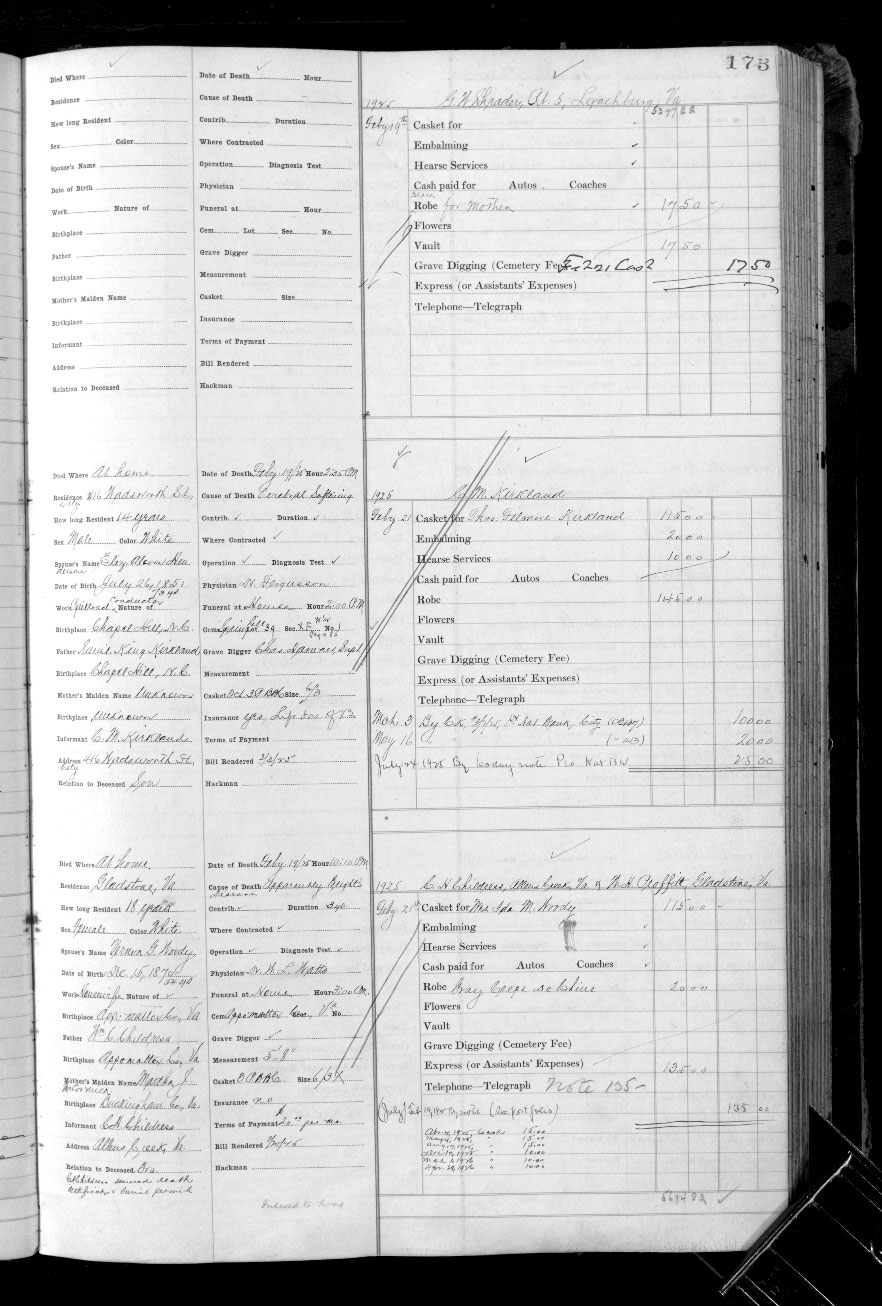 173
Died Where
Residence
How long Resident
Sex Color
Spouse's Name
Date of Birth
Work Nature of
Birthplace
Father
Birthplace
Mother's Maiden Name
Birthplace
Informant
Address
Relation to Deceased
Date of Death Hour
Cause of Death
Contrib. Duration
Where Contracted
Operation Diagnosis Test
Physician
Funeral at Hour
Cem. Lot Sec. No.
Grave Digger
Measurement
Casket Size
Insurance
Terms of Payment
Bill Rendered
Hackman
1925 G W Shrader, Rt. 5, Lynchburg, Va
Feby 19th Casket for
Embalming
Hearse Services
Cash paid for Autos Coaches
Robe for Mother 17 50
Flowers
Vault 17 50
Grave Digging (Cemetery Fee) 17 50
Express (or Assistants' Expenses)
Telephone—Telegraph
Died Where At home
Residence 416 Wadsworth St,
City
How long Resident 14 years
Sex Male Color White
Spouse's Name
Date of Birth July 26, 1851
Work Railroad Conductor Nature of
Birthplace Chapel Hill, N.C.
Father Saml King Kirkland
Birthplace Chapel Hill, N.C.
Mother's Maiden Name Unknown
Birthplace Unknown
Informant C. M. Kirkland
Address 416 Wadsworth St,
City
Relation to Deceased Son
Date of Death Feby 19/25 Hour 2:35 P.M.
Cause of Death Cerebral Softening
Contrib. Duration
Where Contracted
Operation Diagnosis Test
Physician Ferguson
Funeral at House Hour 2:00 P.M.
Cem. Spring Lot 39 Sec. No.
Grave Digger Supt
Measurement
Casket Size 6/3
Insurance yes, Life Ins of Va
Terms of Payment
Bill Rendered 3/2/25
Hackman
1925 C. M. Kirkland
Feby 21 Casket for Thos. Filmore Kirkland 115 00
Embalming 20 00
Hearse Services 10 00
Cash paid for Autos Coaches
Robe 145 00
Flowers
Vault
Grave Digging (Cemetery Fee)
Express (or Assistants' Expenses)
Telephone—Telegraph
Mch. 3 By Ck, 3/2/25, 1st Nat. Bank, City 100 00
May 16 20 00
July 24 1925 By 60 day note 25 00
Died Where At home
Residence Gladstone, Va
How long Resident 18 years
Sex Female Color White
Spouse's Name Woody
Date of Birth Dec 15, 1870
54 yrs
Work Housewife Nature of
Birthplace Appomattox Co, Va
Father Wm C. Childress
Birthplace Appomattox Co, Va
Mother's Maiden Name Martha J.
Birthplace Buckingham Co, Va
Informant C.H. Childress
Address Va
Relation to Deceased Bro
C.H. Childress secured death
certificate & burial permit
Date of Death Feby 19/25 Hour 10:10 P.M.
Cause of Death Apparently Bright's
Disease
Contrib. Duration
Where Contracted
Operation Diagnosis Test
Physician W. L. Watts
Funeral at Home Hour
Cem. Appomattox Co. Sec. Va No.
Grave Digger
Measurement 5' 8"
Casket Size 6/3
Insurance no
Terms of Payment per mo.
Bill Rendered
Hackman
1925 C H Childress, Va & W H Proffitt, Gladstone, Va
Feby 21st Casket for Mrs Ida M. Woody 115 00
Embalming
Hearse Services
Cash paid for Autos Coaches
Robe Gray Crepe de Chine 20 00
Flowers
Vault
Grave Digging (Cemetery Fee)
Express (or Assistants' Expenses) 135 00
Telephone—Telegraph Note 135—
By note (See portfolio) 135 00
Apr 14, 1925, Cash 15.00
15.00
15.00
10.00
10.00
10.00